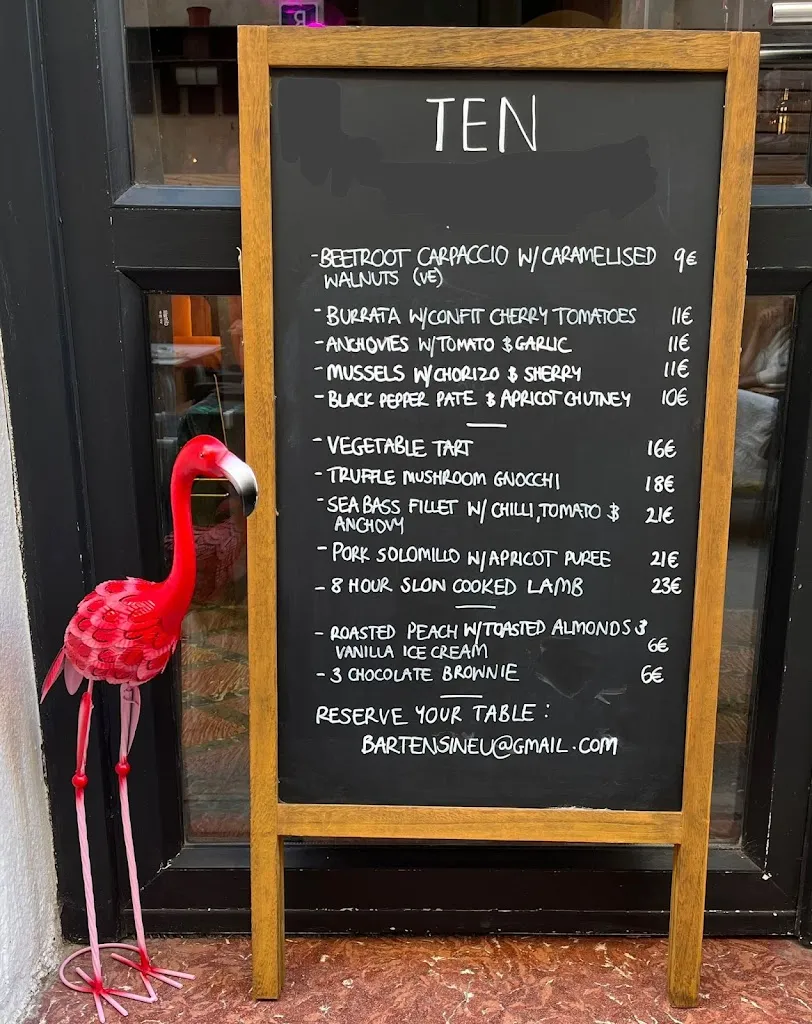 TEN
- BEETROOT CARPACCIO W/ CARAMELISED 9€
WALNUTS (VE)
- BURRATA W/CONFIT CHERRY TOMATOES 11€
- ANCHOVIES W/TOMATO & GARLIC 11€
- MUSSELS W/CHORIZO & SHERRY 11€
- BLACK PEPPER PATE & APRICOT CHUTNEY 10€
- VEGETABLE TART 16€
- TRUFFLE MUSHROOM GNOCCHI 18€
- SEA BASS FILLET W/ CHILLI, TOMATO & 21€
ANCHOVY
- PORK SOLOMILLO W/APRICOT PUREE 21€
- 8 HOUR SLOW COOKED LAMB 23€
- ROASTED PEACH W/TOASTED ALMONDS &
VANILLA ICE CREAM 6€
- 3 CHOCOLATE BROWNIE 6€
RESERVE YOUR TABLE:
BARTENSINEU@GMAIL.COM